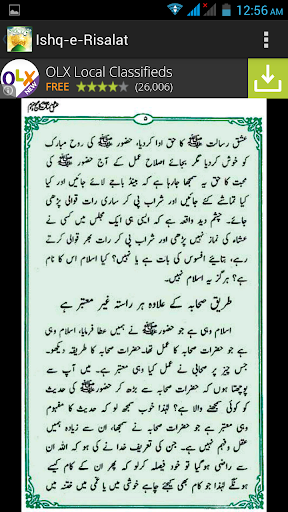 12:56 AM
Ishq-e-Risalat
OLX Local Classifieds
FREE (26,006)
OLX
NEW
۵
عشق رسالت ﷺ کا حق ادا کردیا، حضور ﷺ کی روح مبارک
کو خوش کردیا مگر بجائے اصلاح عمل کے آج حضور ﷺ کی
محبت کا حق یہ سمجھا جارہا ہے کہ بینڈ باجے لائے جائیں اور کیا
کیا تماشے کئے جائیں اور شراب پی کر ساری رات قوالی پڑھی
جائے۔ چشم دید واقعہ ہے کہ ایسی ہی ایک مجلس میں کسی نے
عشاء کی نماز نہیں پڑھی اور شراب پی کر رات بھر قوالی کرتے
رہے، بتایئے افسوس کی بات ہے یا نہیں؟ کیا اسلام اس کا نام
ہے؟ ہرگز یہ اسلام نہیں۔
طریق صحابہ کے علاوہ ہر راستہ غیر معتبر ہے
اسلام وہی ہے جو حضور ﷺ نے ہمیں عطا فرمایا، اسلام وہی
ہے جو حضرات صحابہ کا عمل تھا۔ حضرات صحابہ کا طریقہ دیکھو۔
جس چیز پر صحابی نے عمل کیا بس وہی دین ہے۔ میں آپ سے
پوچھتا ہوں کہ حضرات صحابہ سے بڑھ کر حضور ﷺ کی حدیث
کو کوئی سمجھنے والا ہے؟ لہٰذا خوب سمجھ لو کہ حدیث کا مفہوم
وہی معتبر ہے جو حضرات صحابہ نے سمجھا، ان سے زیادہ ہمیں
عقل و فہم نہیں ہے۔ جن کی تعریف خدا نے کی ہو کہ اللہ ان
سے راضی ہوگیا تو خود فیصلہ کرلو کہ پھر ان کے کام کیسے
ہونگے لہٰذا جو کام بھی کیجئے چاہے خوشی میں یا غمی میں ختنہ میں